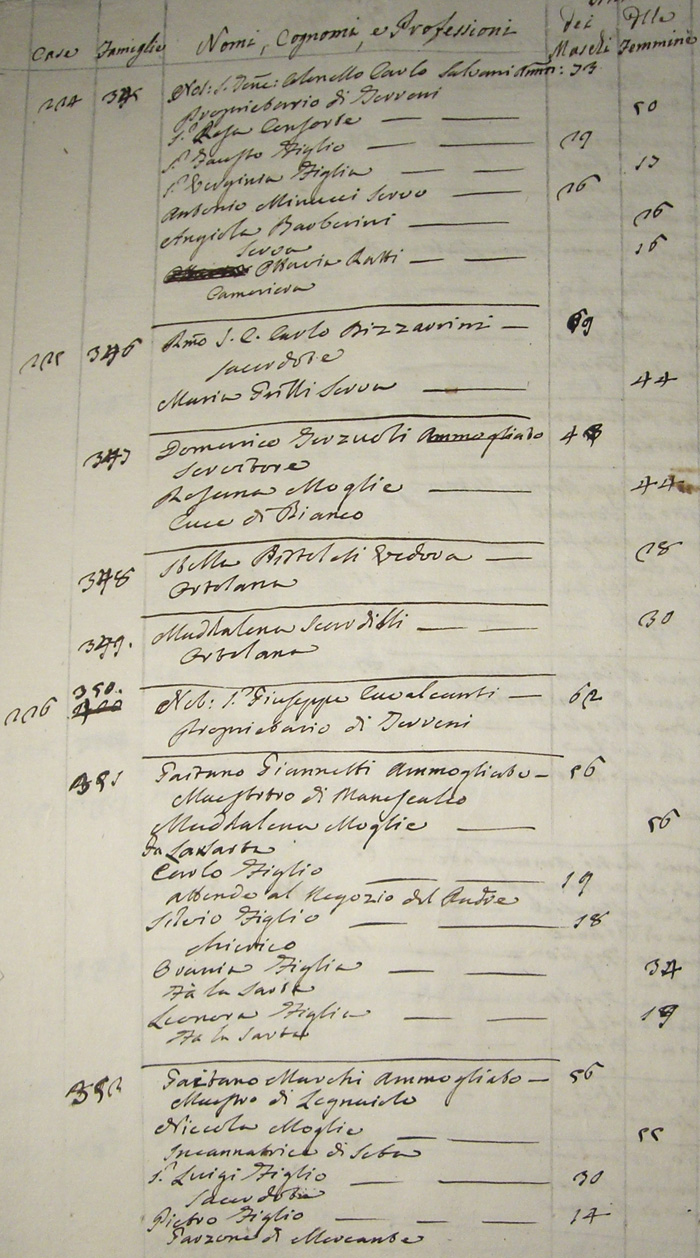 Case Famiglie Nomi, Cognomi, e Professioni dei Maschi Delle Femmine
224 345 Nob: S. Tene: Colonello Carlo Salvani Amm: 53
Proprietario di Terreni
S.ra Rosa Consorte — — 50
S.r Fausto Figlio — — 19
S.ra Verginia Figlia — — 13
Antonio Minucci Servo — — 26
Angiola Barberini — 26
Serva
Ottavia Ratti — — 16
Cameriera
225 346 Rmo S. C. Carlo Bizzarrini — 69
Sacerdote
Maria Grilli Serva — 44
347 Domenico Gorzuoli Ammogliato 48
Servitore
Rosanna Moglie — 44
Cuce di Bianco
348 Stella Ristolesi Vedova — 28
Ortolana
349. Maddalena — — 30
Ortolana
350.
226 Nob: S.r Giuseppe Cavalcanti — 62
Proprietario di Terreni
351 Gaetano Giannetti Ammogliato — 56
Maestro di Manescalco
Maddalena Moglie — 56
Fa la Sarta
Carlo Figlio — — 19
attende al Negozio del Padre
Silvio Figlio — — 18
Chierico
Figlia — — 34
Fà la Sarta
Leonora Figlia — — 19
Fa la Sarta
352 Gaetano Marchi Ammogliato — 56
Maestro di Legnaiolo
Niccola Moglie — — 55
Incannatrice di Seta
S.r Luigi Figlio — — 30
Sacerdote
Pietro Figlio — — 14
Garzone di Mercante